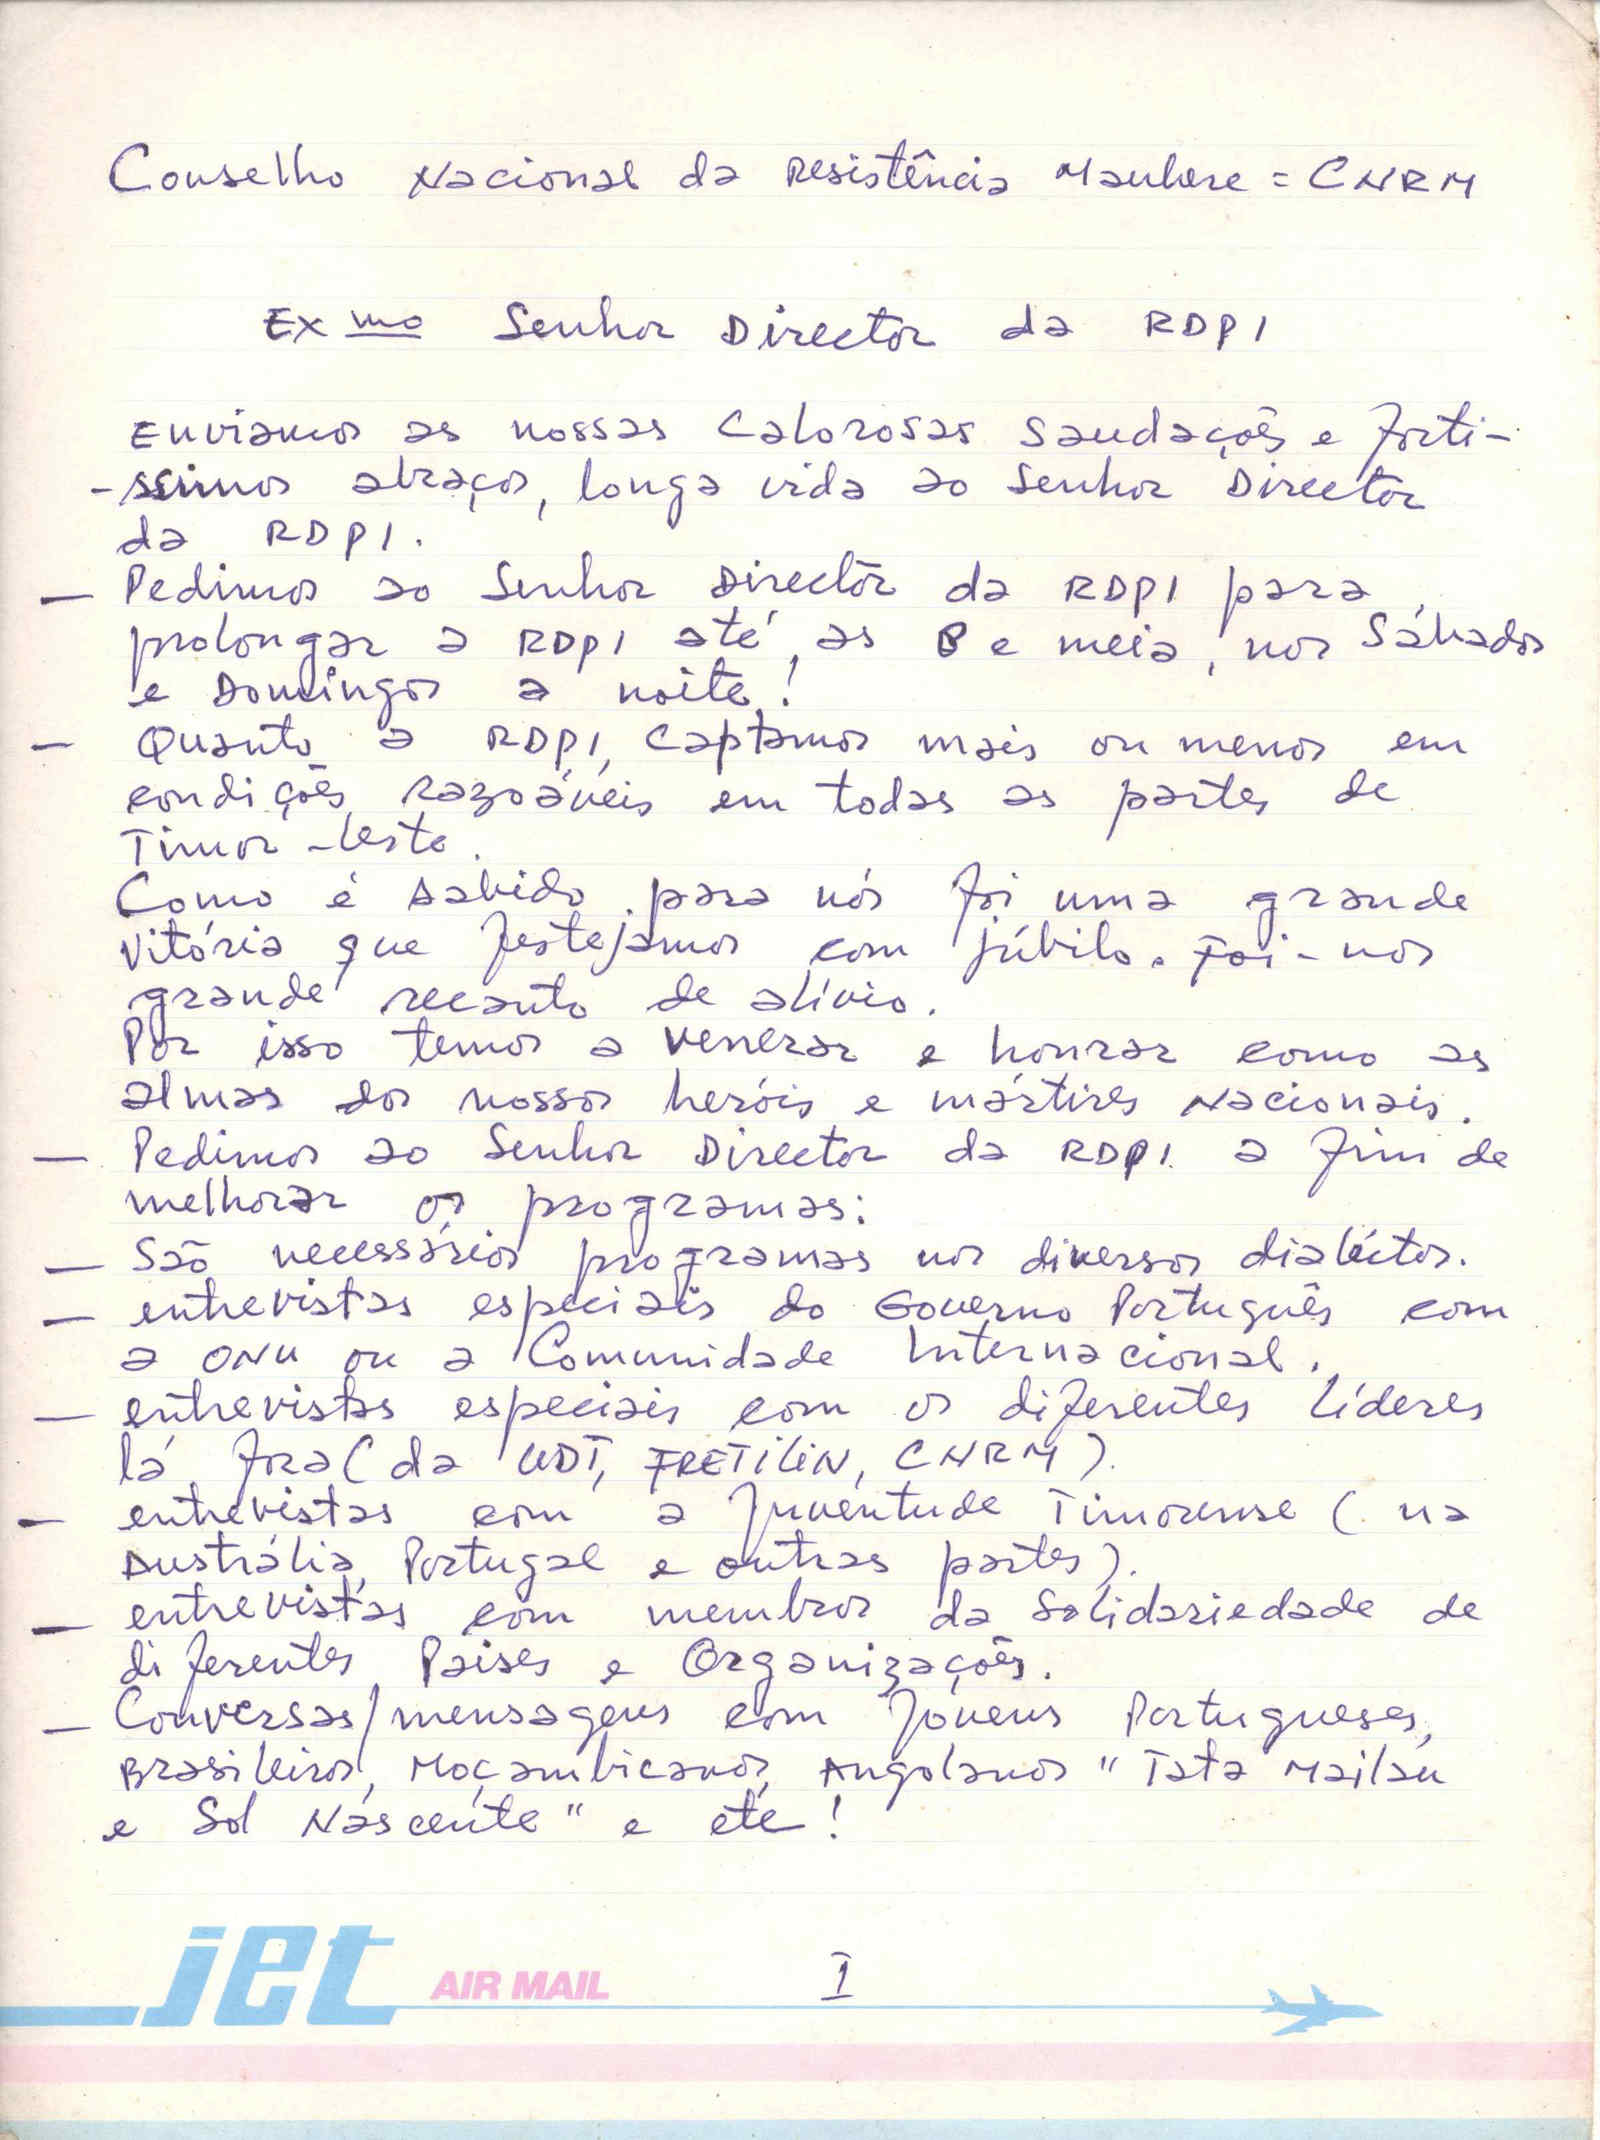 Conselho Nacional da Resistência Maubere = CNRM
Exmo Senhor Director da RDPI
Enviamos as nossas calorosas saudações e forti-
-ssimos abraços, longa vida ao Senhor Director
da RDPI.
— Pedimos ao Senhor Director da RDPI para
prolongar a RDPI até as 8 e meia, nos Sábados
e Domingos a noite!
— Quanto a RDPI, captamos mais ou menos em
condições razoáveis em todas as partes de
Timor-Leste.
Como é sabido para nós foi uma grande
vitória que festejamos com júbilo. Foi-nos
grande recanto de alívio.
Por isso temos a venerar e honrar como as
almas dos nossos heróis e mártires Nacionais.
— Pedimos ao Senhor Director da RDPI a fim de
melhorar os programas:
— São necessários programas nos diversos dialéctos.
— entrevistas especiais do Governo Português com
a ONU ou a Comunidade Internacional.
— entrevistas especiais com os diferentes líderes
lá fora (da UDT, FRETILIN, CNRM).
— entrevistas com a Juventude Timorense (na
Austrália, Portugal e outras partes).
— entrevistas com membros da Solidariedade de
diferentes Paises e Organizações.
— Conversas/mensagens com Jovens Portugueses,
Brasileiros, Moçambicanos, Angolanos "Tata Mailau
e Sol Nascente" e etc!
jet AIR MAIL I